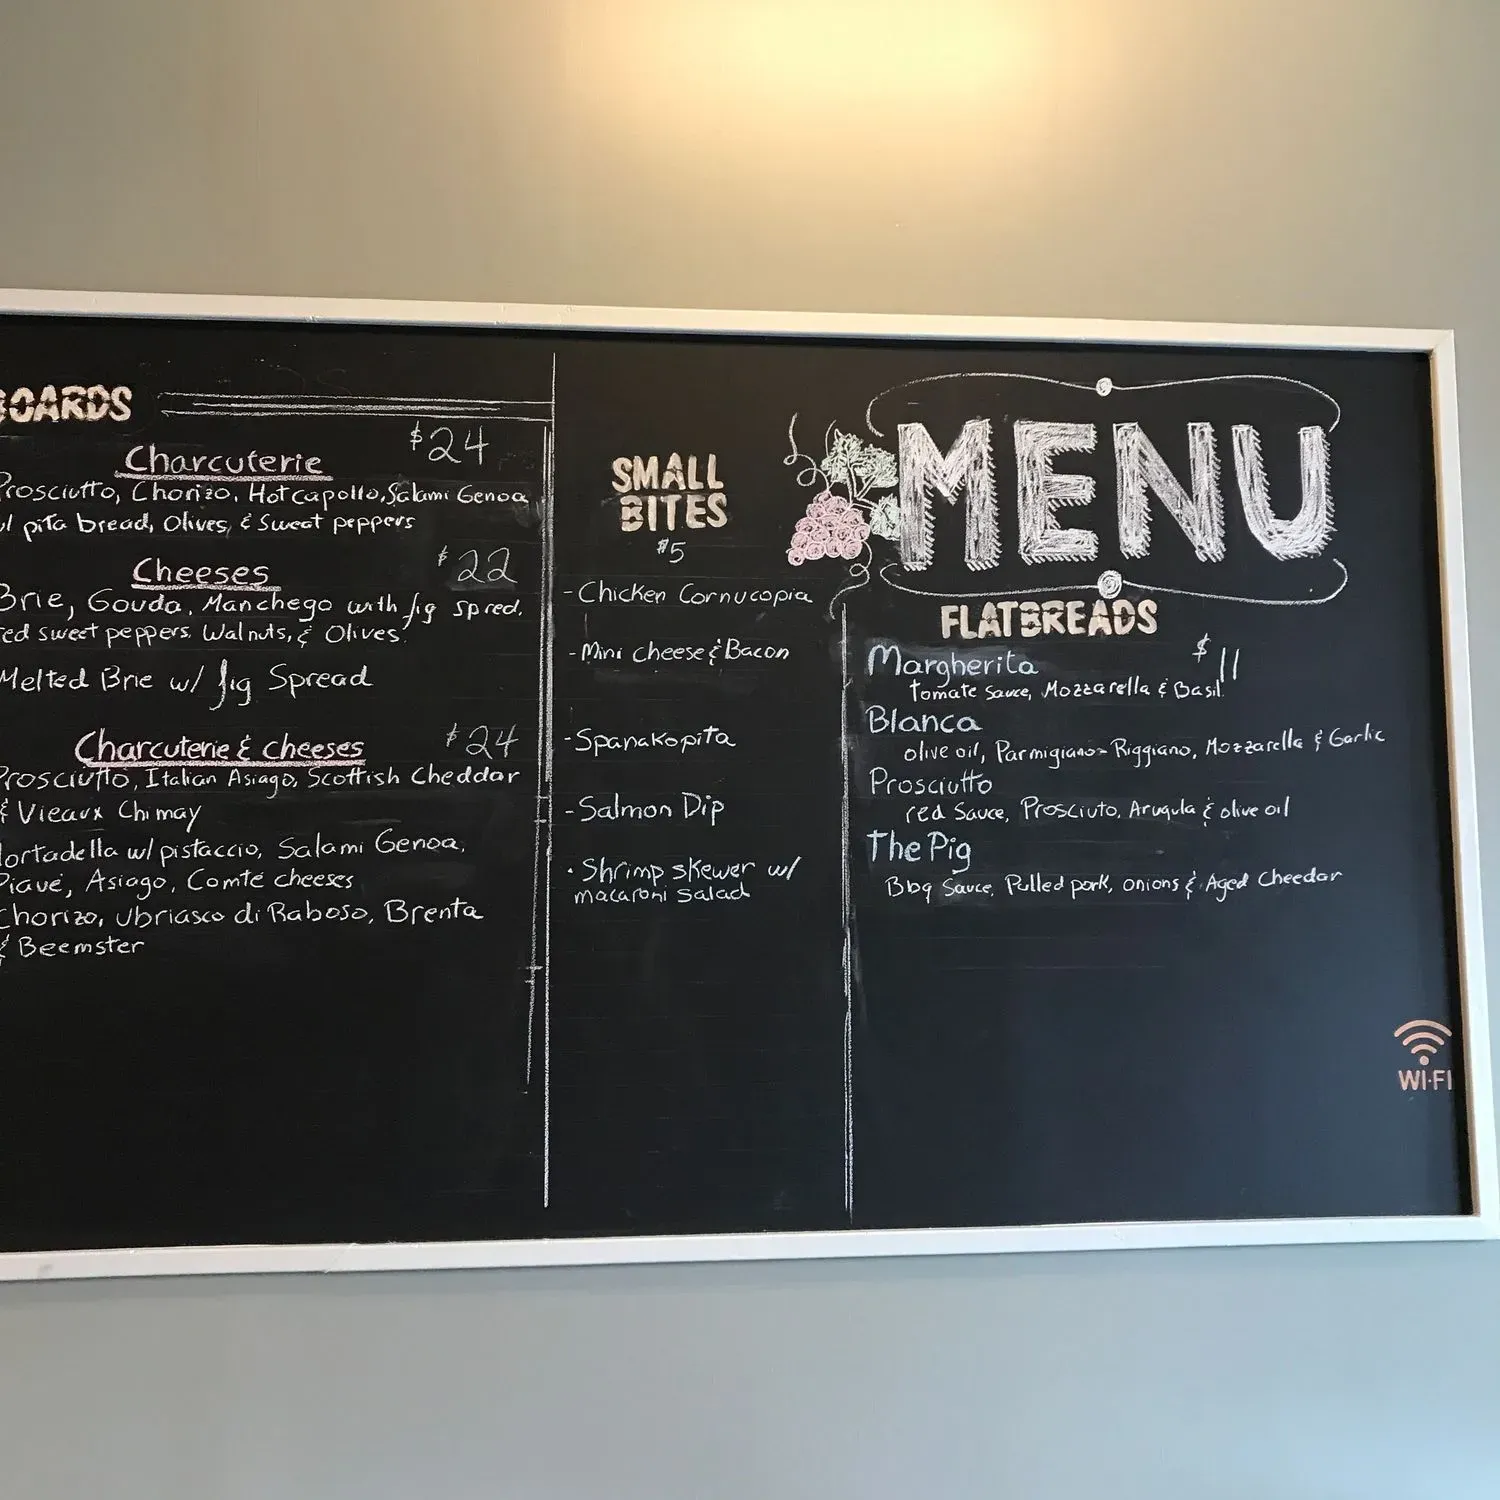 BOARDS
Charcuterie $24
Prosciutto, Chorizo, Hot capollo, Salami Genoa
w/ pita bread, Olives, & Sweet peppers
Cheeses $22
Brie, Gouda, Manchego with fig spred,
red sweet peppers, Walnuts, & Olives.
Melted Brie w/ fig Spread
Charcuterie & cheeses $24
Prosciutto, Italian Asiago, Scottish Cheddar
& Vieaux Chimay
Mortadella w/ pistaccio, Salami Genoa,
Piave, Asiago, Comté cheeses
Chorizo, Ubriasco di Raboso, Brenta
& Beemster
SMALL
BITES
$5
- Chicken Cornucopia
- Mini cheese & Bacon
- Spanakopita
- Salmon Dip
• Shrimp skewer w/
macaroni salad
MENU
FLATBREADS
Margherita $11
tomate sauce, Mozzarella & Basil
Blanca
olive oil, Parmigiano-Riggiano, Mozzarella & Garlic
Prosciutto
red Sauce, Prosciuto, Arugula & olive oil
The Pig
Bbq Sauce, Pulled pork, onions & Aged Cheedar
WI-FI